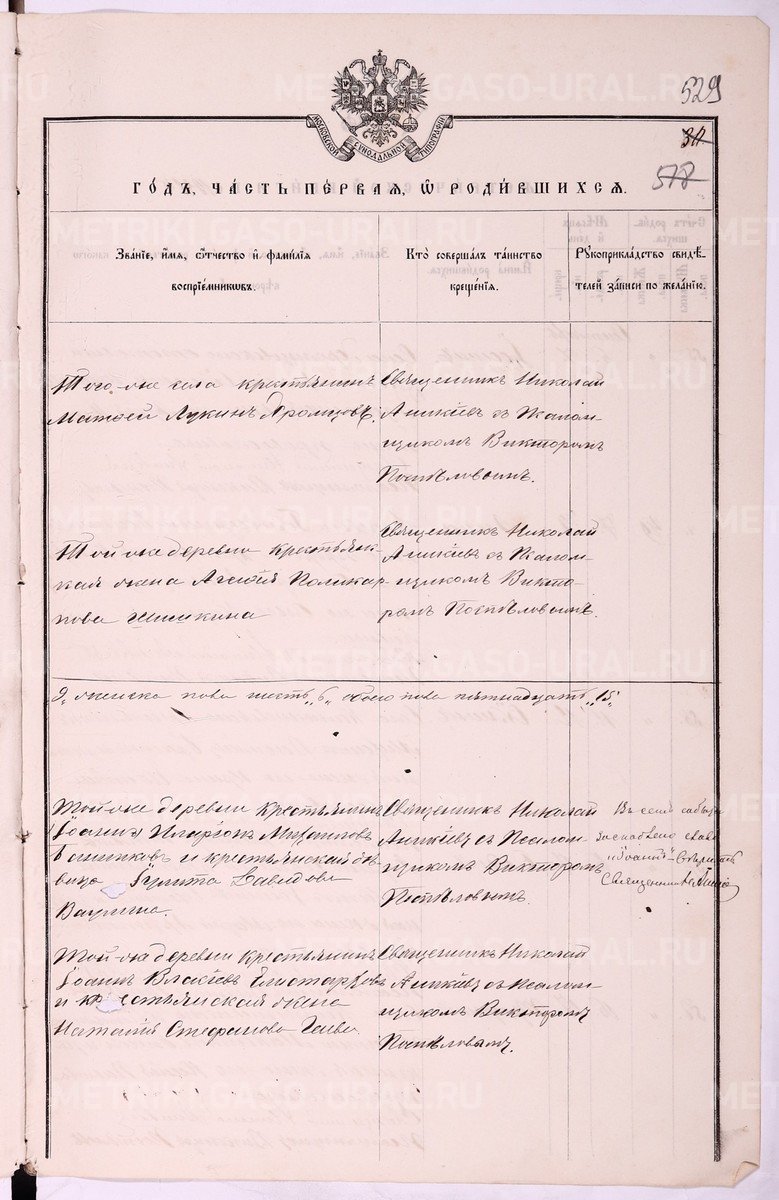 529
34
578
МОСКОВСКОЙ СѴНОДАЛЬНОЙ ТИПОГРАФІИ
ГО́ДЪ, ЧА́СТЬ ПЕ́РВАЯ, Ѡ҆ РОДИ́ВШИХСЯ.
Зва́нїе, и҆́мѧ, ѻ҆́тчество и҆ фами́лїѧ
воспрїе́мникѡвъ.
Кто̀ соверша́лъ та́инство
креще́нїѧ.
Рꙋкоприкла́дство свидѣ́-
телей за́писи по жела́нїю.
Того-же села крестьянинъ
Матѳей Лукинъ
Священникъ Николай
Аникіевъ съ Псалом-
щикомъ Викторомъ
Поспѣловымъ.
Той же деревни крестьян-
ская жена Поликар-
пова Шишкина
Священникъ Николай
Аникіевъ съ Псалом-
щикомъ Викто-
ромъ Поспѣловымъ.
9, женска пола шесть „6„ обоего пола пятнадцать „15„
Той-же деревни крестьянинъ
Іоаннъ
и крестьянская дѣ-
вица Давидова
Ваулина.
Священникъ Николай
Аникіевъ съ Псалом-
щикомъ Викторомъ
Поспѣловымъ.
Въ семъ
слово
„Іоаннъ„ вѣрить
Священникъ
Той-же деревни крестьянинъ
Іоаннъ Власіевъ
и крестьянская жена
Наталія Стефанова
Священникъ Николай
Аникіевъ съ Псалом-
щикомъ Викторомъ
Поспѣловымъ.
METRIKI.GASO-URAL.RU